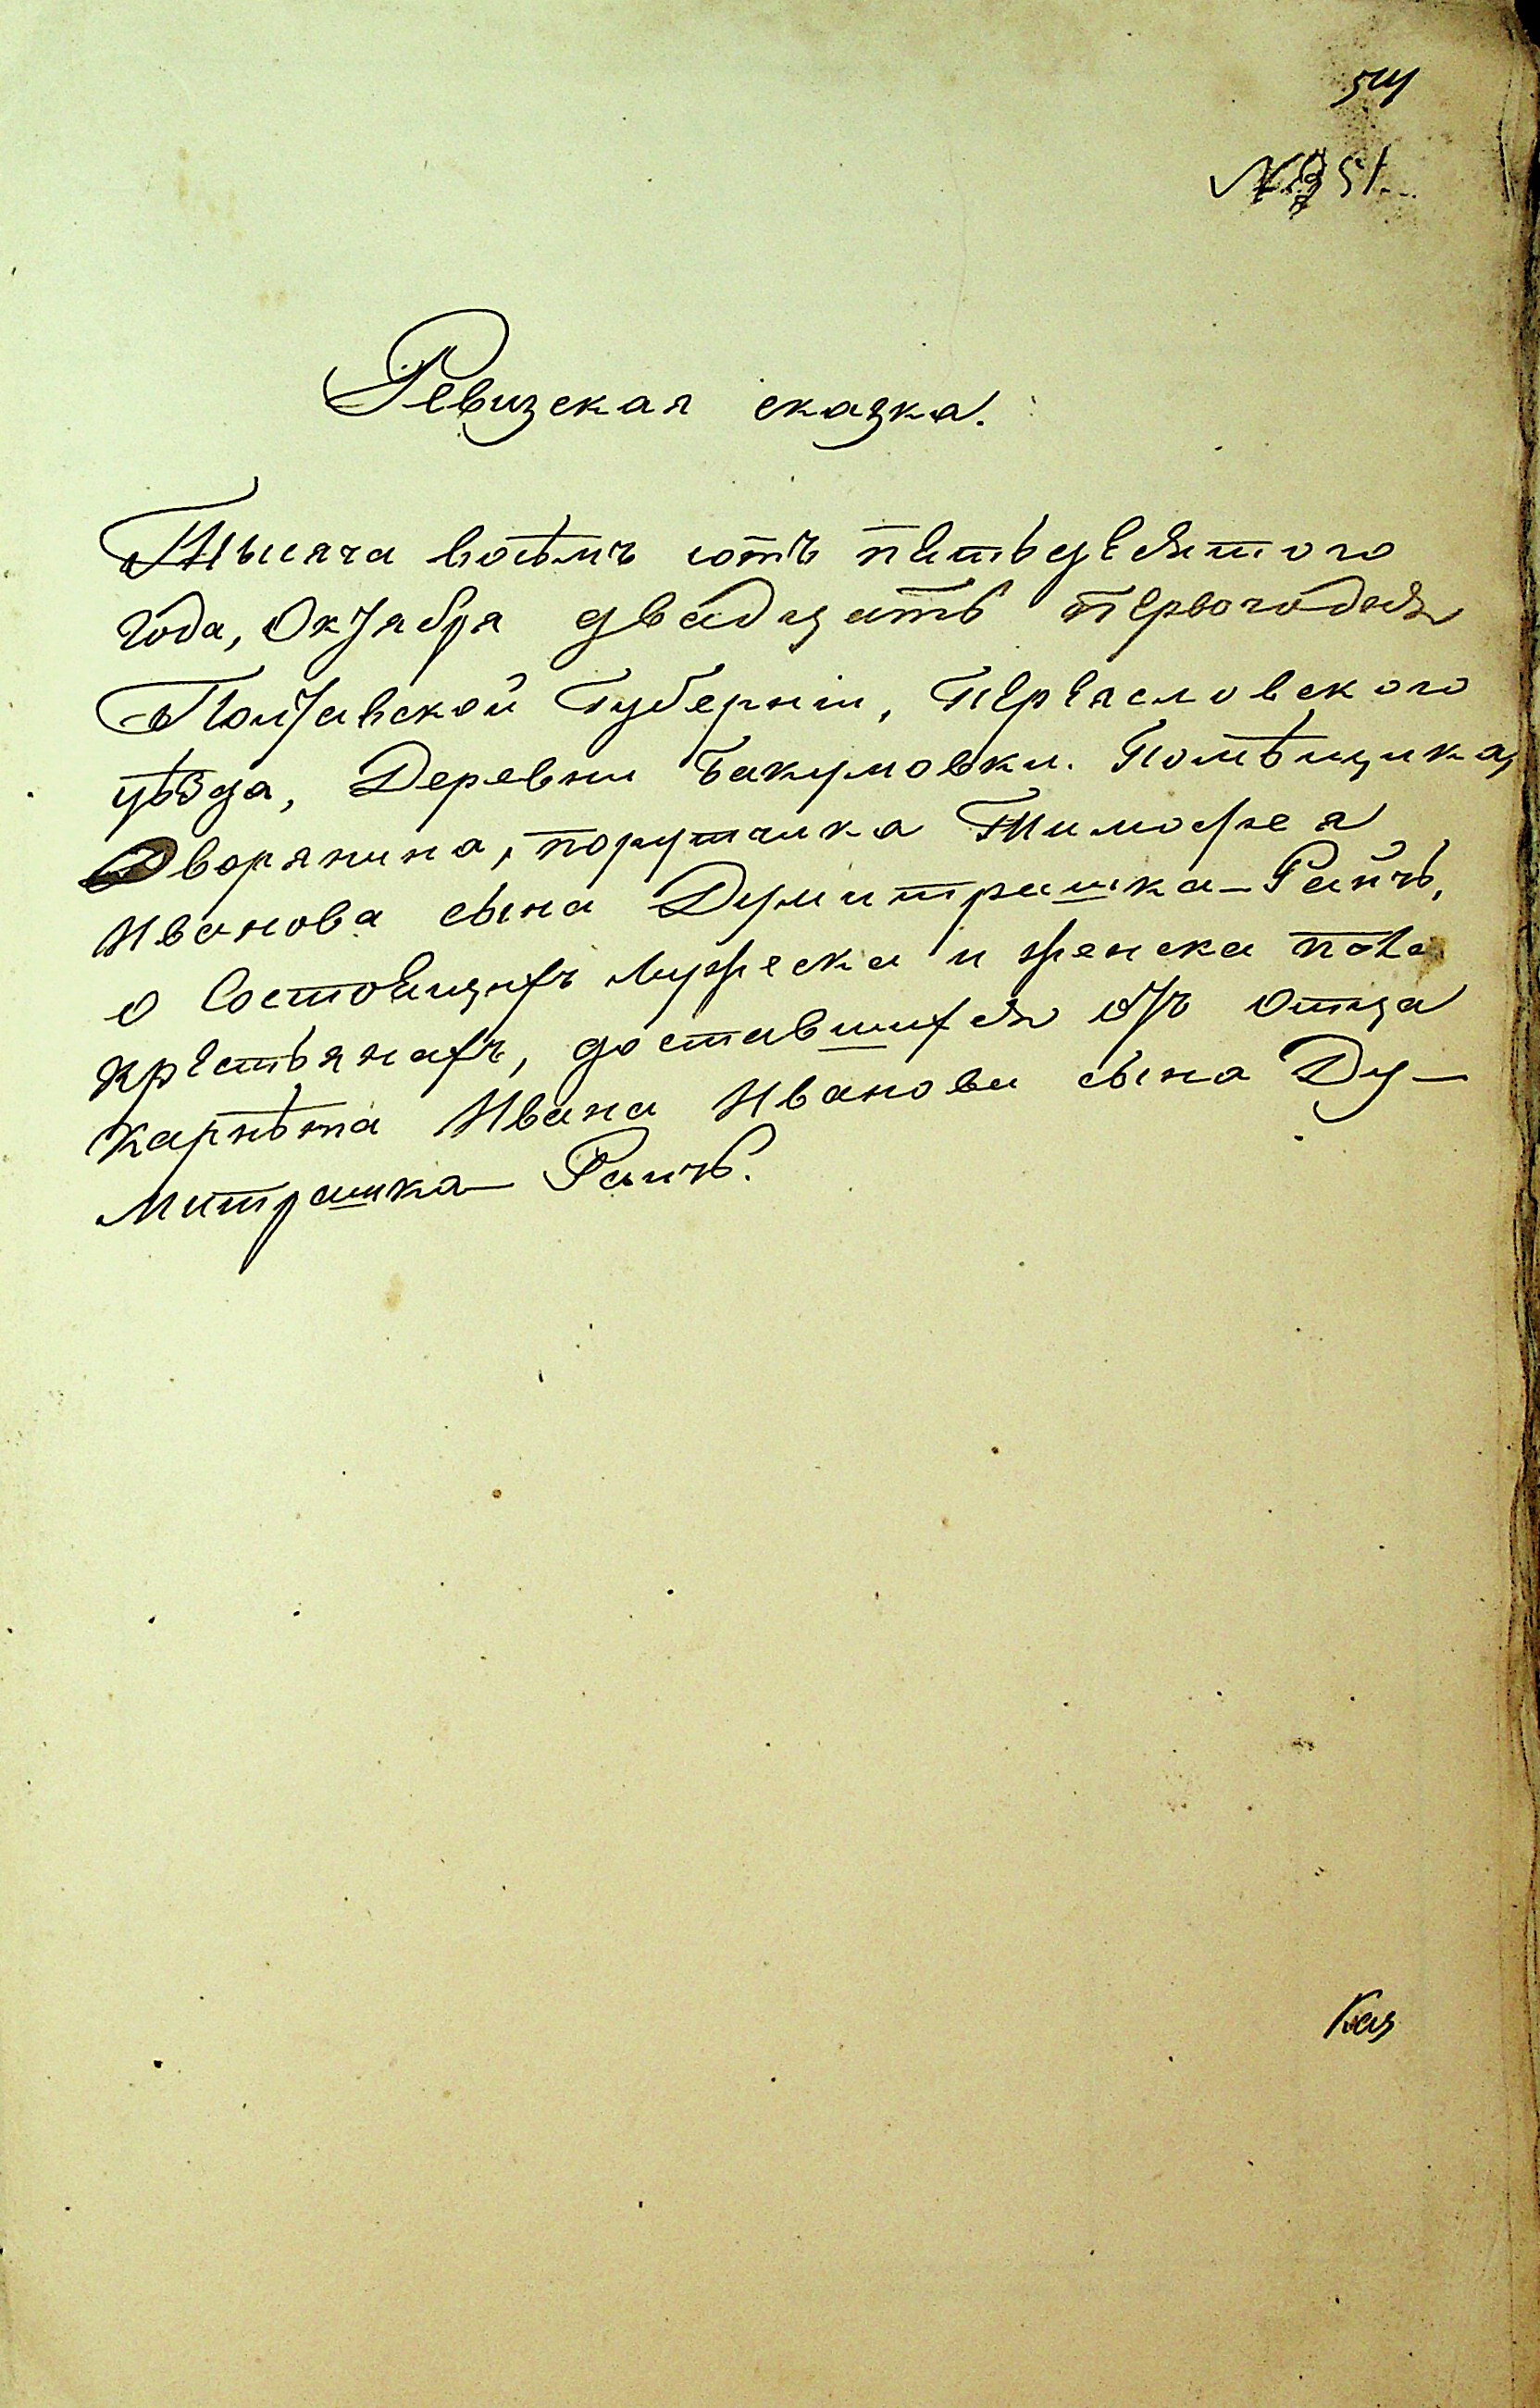 514
№ 51.
Ревизская сказка.
Тысяча восемъ сотъ пятьдесятого
года, Октября двадцать перваго дня
Полтавской Губерніи, Переясловского
уѣзда, Деревни Бакумовки. Помѣщика,
Дворянина, порутчика Тимофея
Иванова сына Думитрашка-Райчъ,
о Состоящихъ мужеска и женска пола
крестьянахъ, доставшихся отъ отца
Карнета Ивана Иванова сына Ду-
митрашка-Раичъ.